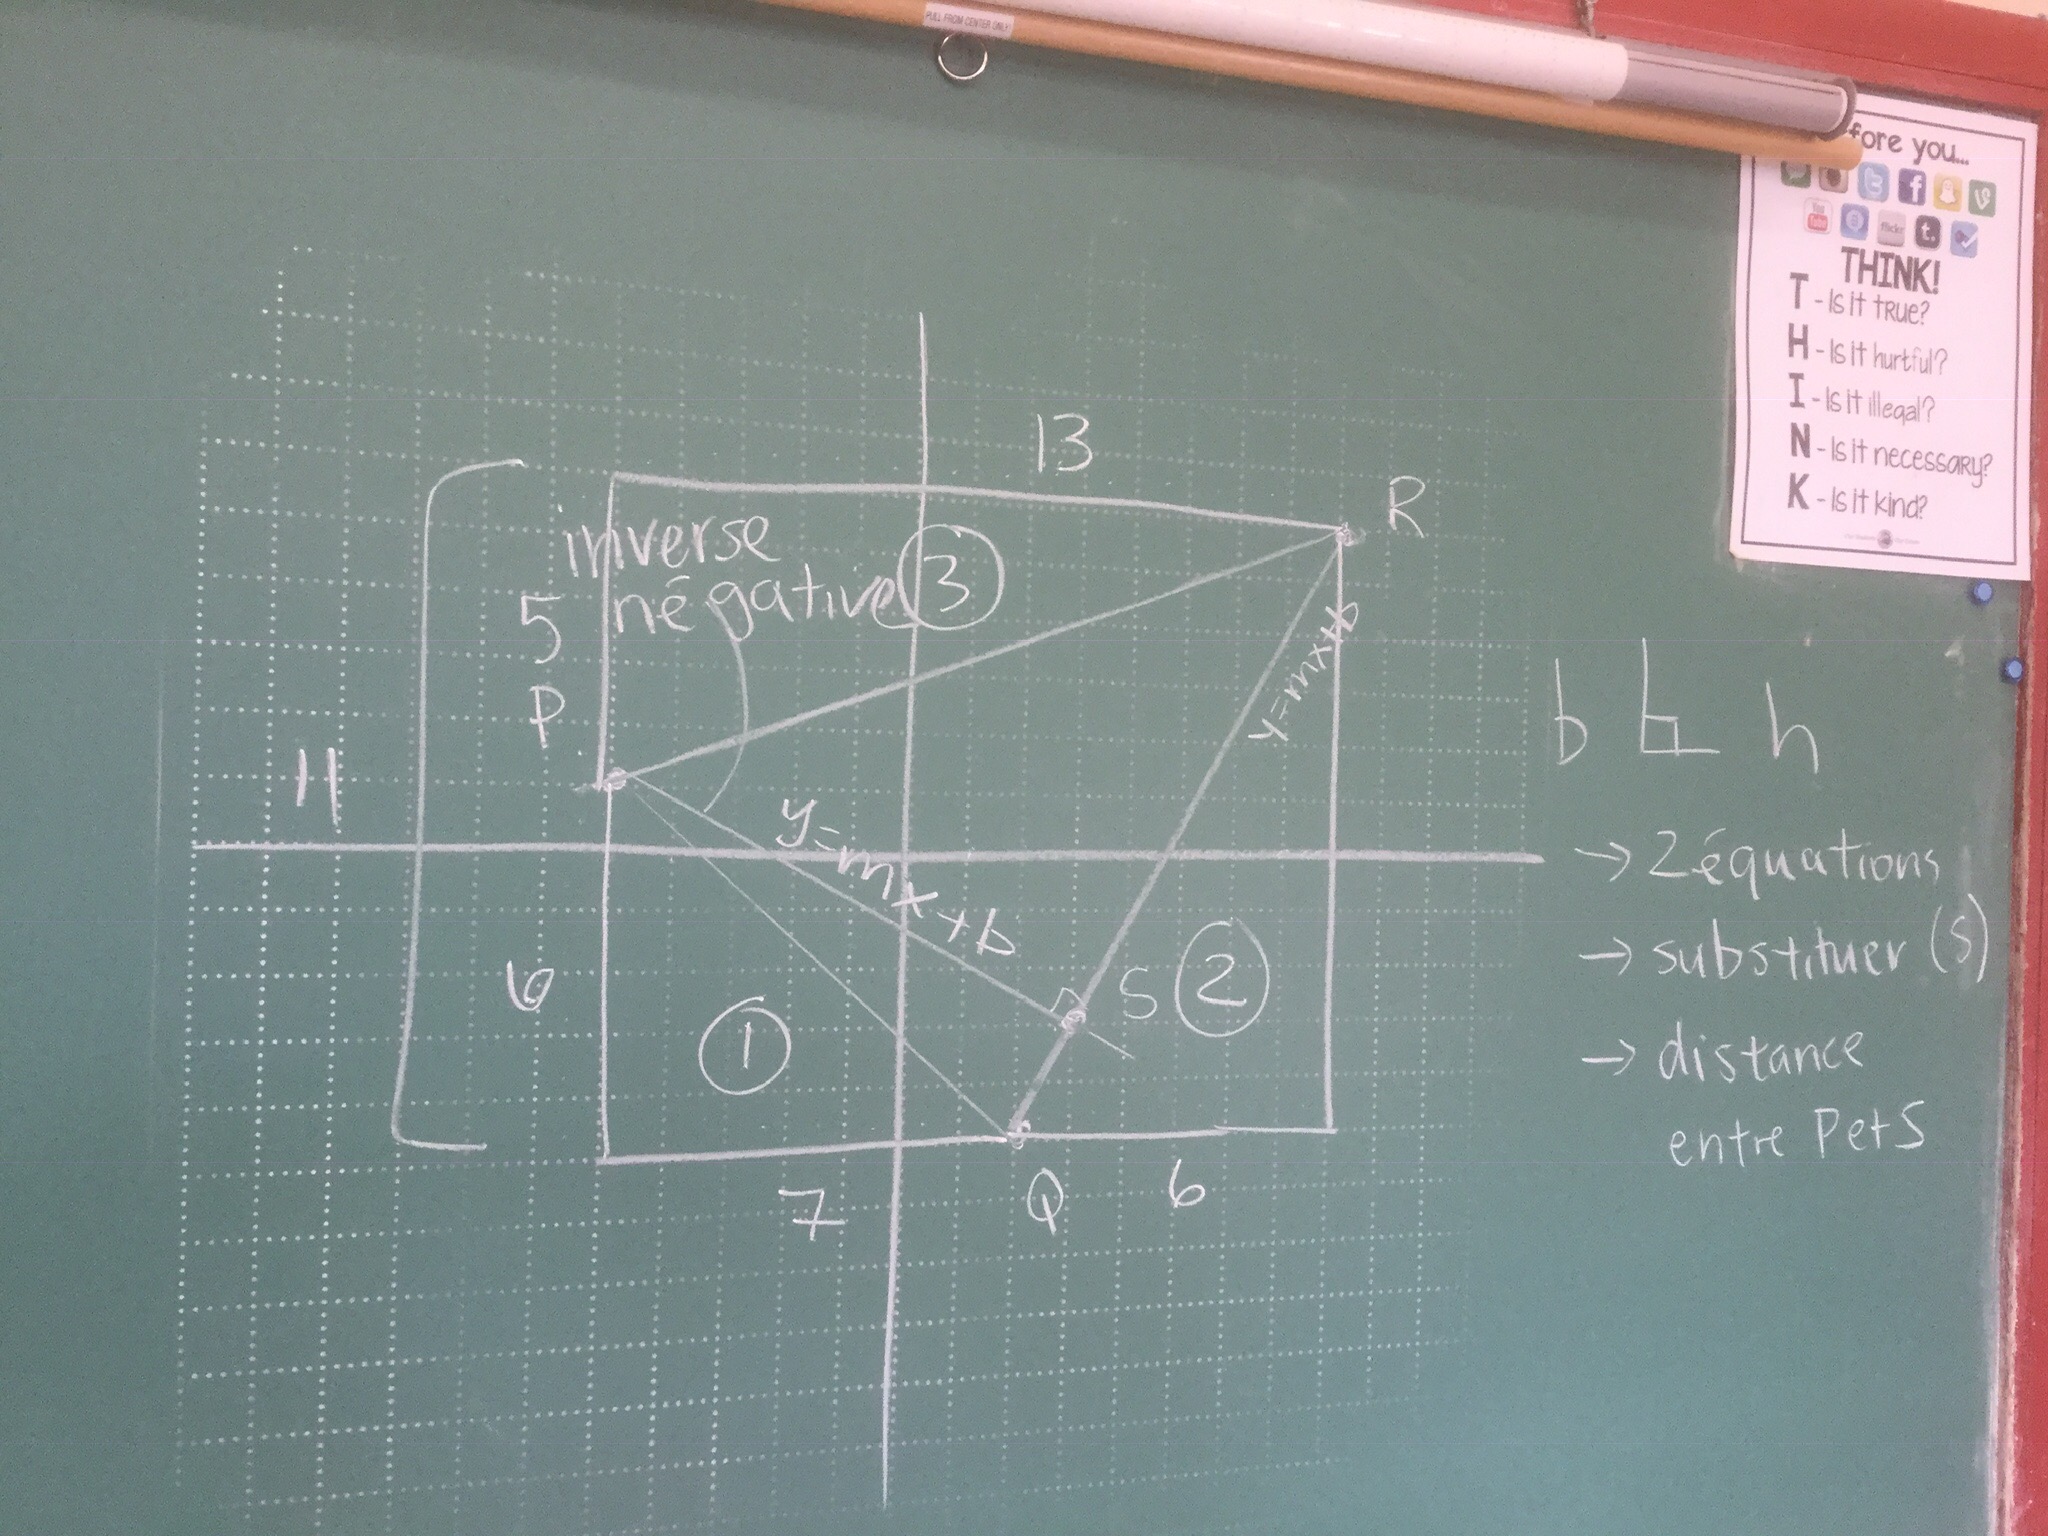 PULL FROM CENTER ONLY
fore you...
You
Tube
flickr
THINK!
T - Is it TRUE?
H - Is it hurtful?
I - Is it illegal?
N - Is it necessary?
K - Is it kind?
13
R
inverse
négative
3
5
P
11
y=mx+b
y=mx+b
b h
→ 2 équations
→ substituer (s)
→ distance
entre P et S
6
1
S
2
7
Q
6